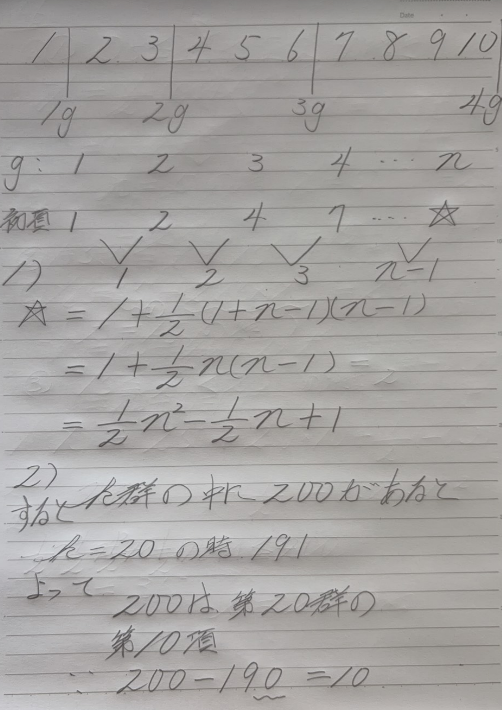 Date
1 | 2 3 | 4 5 6 | 7 8 9 10 |
1g 2g 3g 4g
g: 1 2 3 4 … n
初項 1 2 4 7 … ☆
1) 1 2 3 n-1
☆ = 1 + 1/2 (1+n-1)(n-1)
= 1 + 1/2 n(n-1)
= 1/2 n² - 1/2 n + 1
2)
k群の中に200があると
すると
k=20の時 191
よって
200は第20群の
第10項
∵ 200-190=10